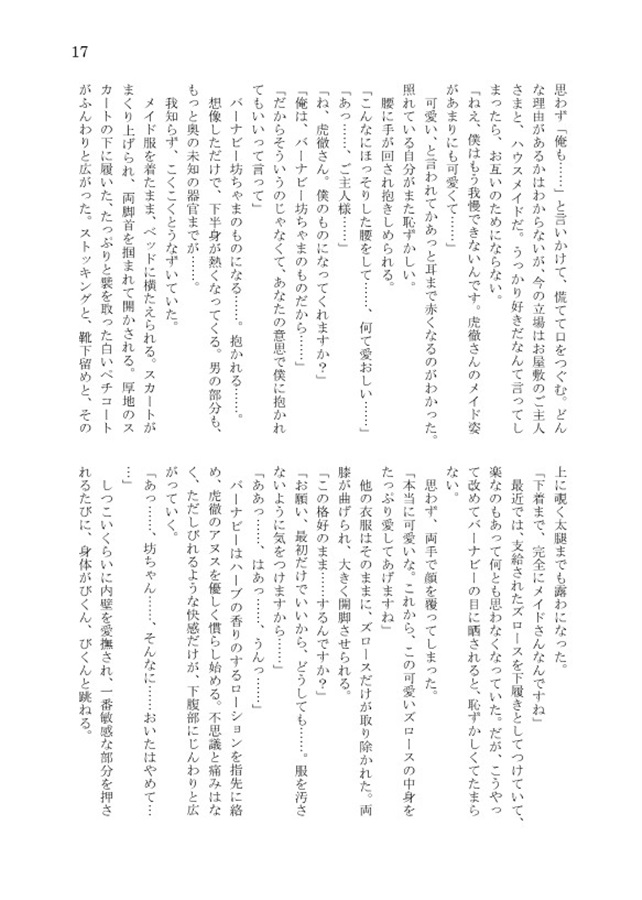 17
思わず「俺も……」と言いかけて、慌てて口をつぐむ。どん
な理由があるかはわからないが、今の立場はお屋敷のご主人
さまと、ハウスメイドだ。うっかり好きだなんて言ってし
まったら、お互いのためにならない。
「ねえ、僕はもう我慢できないんです。虎徹さんのメイド姿
があまりにも可愛くて……」
可愛い、と言われてかあっと耳まで赤くなるのがわかった。
照れている自分がまた恥ずかしい。
腰に手が回され抱きしめられる。
「こんなにほっそりした腰をして……、何て愛おしい……」
「あっ……、ご主人様……」
「ね、虎徹さん。僕のものになってくれますか？」
「俺は、バーナビー坊ちゃまのものだから……」
「だからそういうのじゃなくて、あなたの意思で僕に抱かれ
てもいいって言って」
バーナビー坊ちゃまのものになる……。抱かれる……。
想像しただけで、下半身が熱くなってくる。男の部分も、
もっと奥の未知の器官までが……。
我知らず、こくこくとうなずいていた。
メイド服を着たまま、ベッドに横たえられる。スカートが
まくり上げられ、両脚首を掴まれて開かされる。厚地のス
カートの下に履いた、たっぷりと襞を取った白いペチコート
がふんわりと広がった。ストッキングと、靴下留めと、その
上に覗く太腿までも露わになった。
「下着まで、完全にメイドさんなんですね」
最近では、支給されたズロースを下履きとしてつけていて、
楽なのもあって何とも思わなくなっていた。だが、こうやっ
て改めてバーナビーの目に晒されると、恥ずかしくてたまら
ない。
思わず、両手で顔を覆ってしまった。
「本当に可愛いな。これから、この可愛いズロースの中身を
たっぷり愛してあげますね」
他の衣服はそのままに、ズロースだけが取り除かれた。両
膝が曲げられ、大きく開脚させられる。
「この格好のまま……するんですか？」
「お願い、最初だけでいいから、どうしても……。服を汚さ
ないように気をつけますから……」
「ああっ……、はあっ……、うんっ……」
バーナビーはハーブの香りのするローションを指先に絡
め、虎徹のアヌスを優しく慣らし始める。不思議と痛みはな
く、ただしびれるような快感だけが、下腹部にじんわりと広
がっていく。
「あっ……、坊ちゃん……、そんなに……おいたはやめて…
…」
しつこいくらいに内壁を愛撫され、一番敏感な部分を押さ
れるたびに、身体がびくん、びくんと跳ねる。